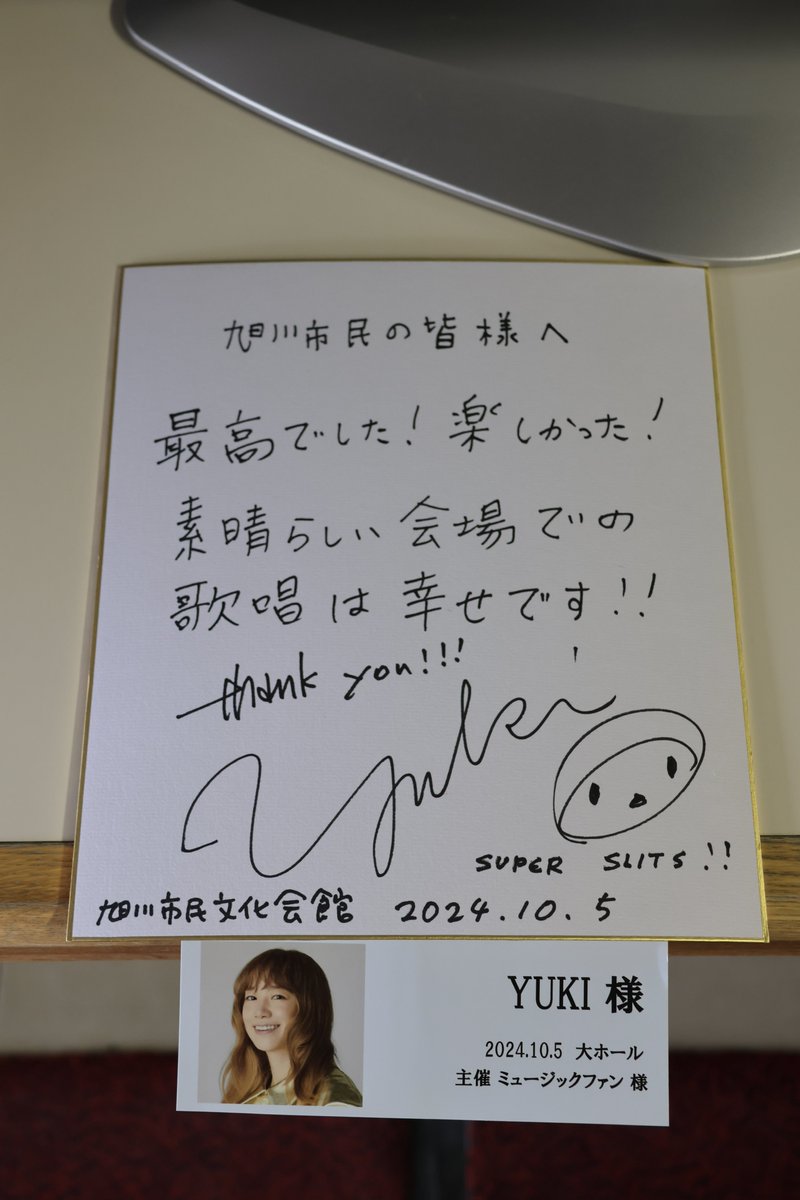 旭川市民の皆様へ
最高でした！楽しかった！
素晴らしい会場での
歌唱は幸せです！！
thank you!!!
Yuki
SUPER SLITS !!
旭川市民文化会館 2024.10.5
YUKI 様
2024.10.5 大ホール
主催 ミュージックファン 様